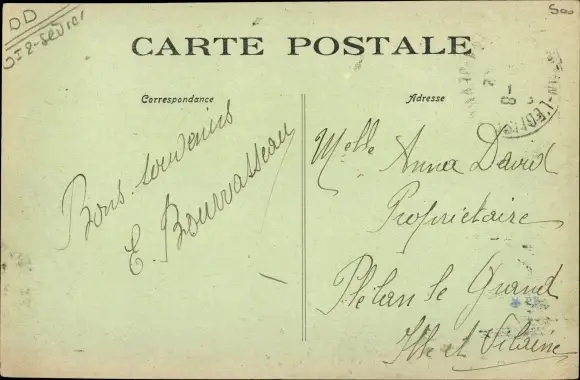 DD
500
CARTE POSTALE
Correspondance
Adresse
Bons souvenirs
E. Bourvasseau
Melle Anna David
Propriétaire
Plélan le Grand
Ille et Vilaine